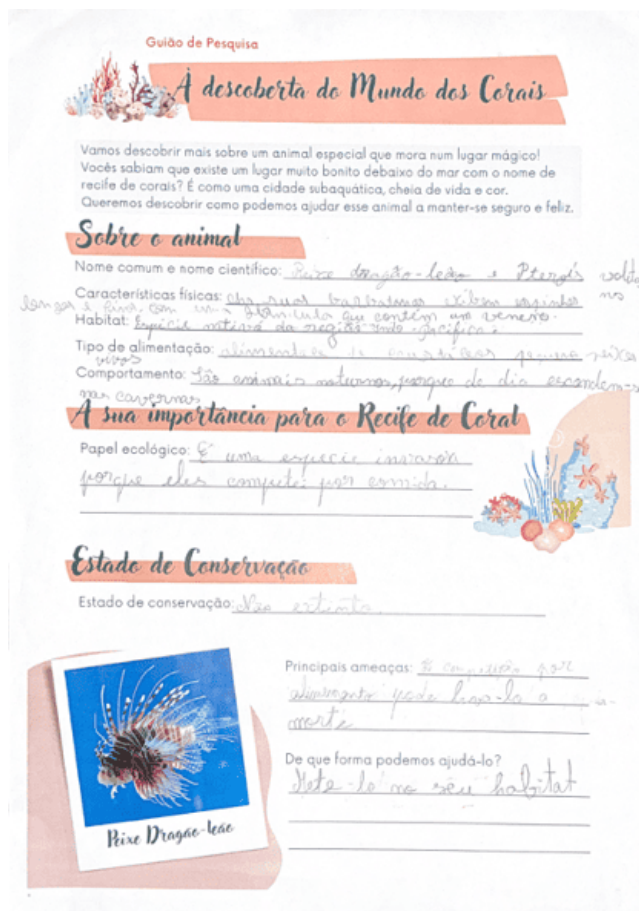 Guião de Pesquisa
À descoberta do Mundo dos Corais
Vamos descobrir mais sobre um animal especial que mora num lugar mágico!
Vocês sabiam que existe um lugar muito bonito debaixo do mar com o nome de
recife de corais? É como uma cidade subaquática, cheia de vida e cor.
Queremos descobrir como podemos ajudar esse animal a manter-se seguro e feliz.
Sobre o animal
Nome comum e nome científico: Peixe dragão-leão e Pterois
Características físicas: as suas barbatanas exibem espinhos
longos e finos com uma glândula que contém um veneno.
Habitat: Espécie nativa da região indo-pacífica
Tipo de alimentação: alimentam-se de crustáceos peixes
vivos
Comportamento: São animais noturnos, porque de dia escondem-se
nas cavernas
A sua importância para o Recife de Coral
Papel ecológico: É uma espécie invasora
porque eles compete por comida.
Estado de Conservação
Estado de conservação: Não extinto.
Principais ameaças: A competição por
alimento pode levá-lo a
morte
De que forma podemos ajudá-lo?
Mete-lo no seu habitat
Peixe Dragão-leão